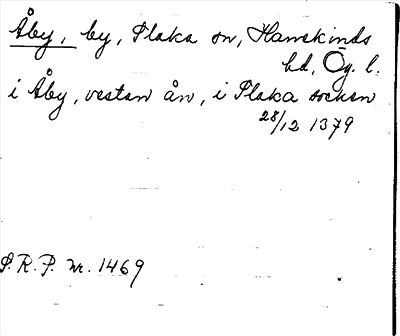 Åby, by, Slaka sn, Hanekinds
hd, Ög. l.
i Åby, vestan ån, i Slaka socken
28/12 1379
S.R.P. nr. 1469